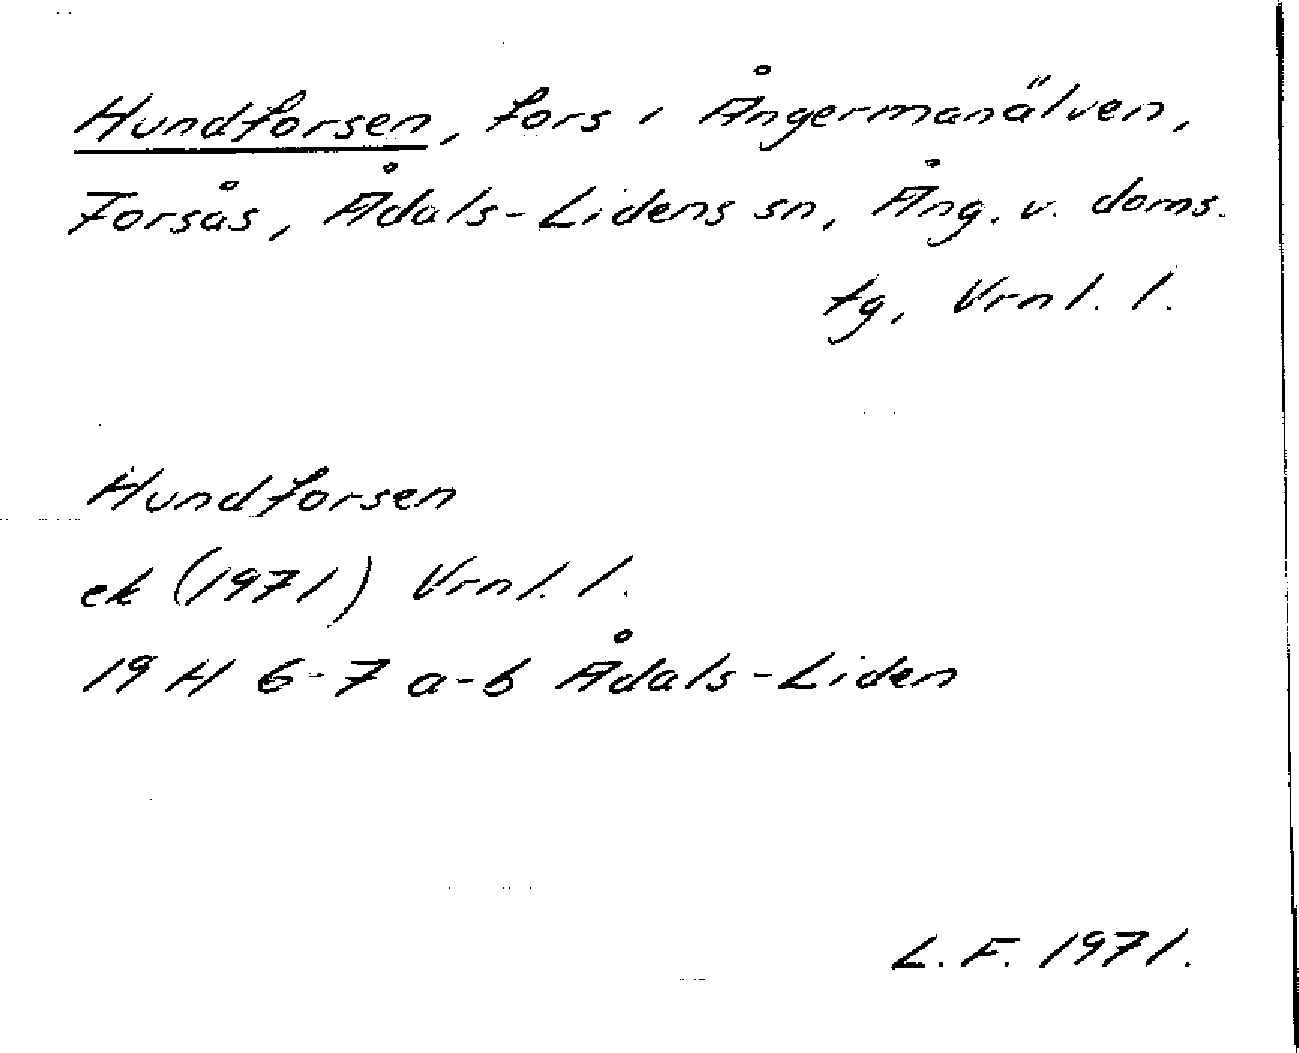 Hundforsen, fors i Ångermanälven,
Forsås, Ådals-Lidens sn, Ång. v. doms.
tg, Vrnl. l.
Hundforsen
ek (1971) Vrnl. l.
19 H 6-7 a-b Ådals-Liden
L. F. 1971.